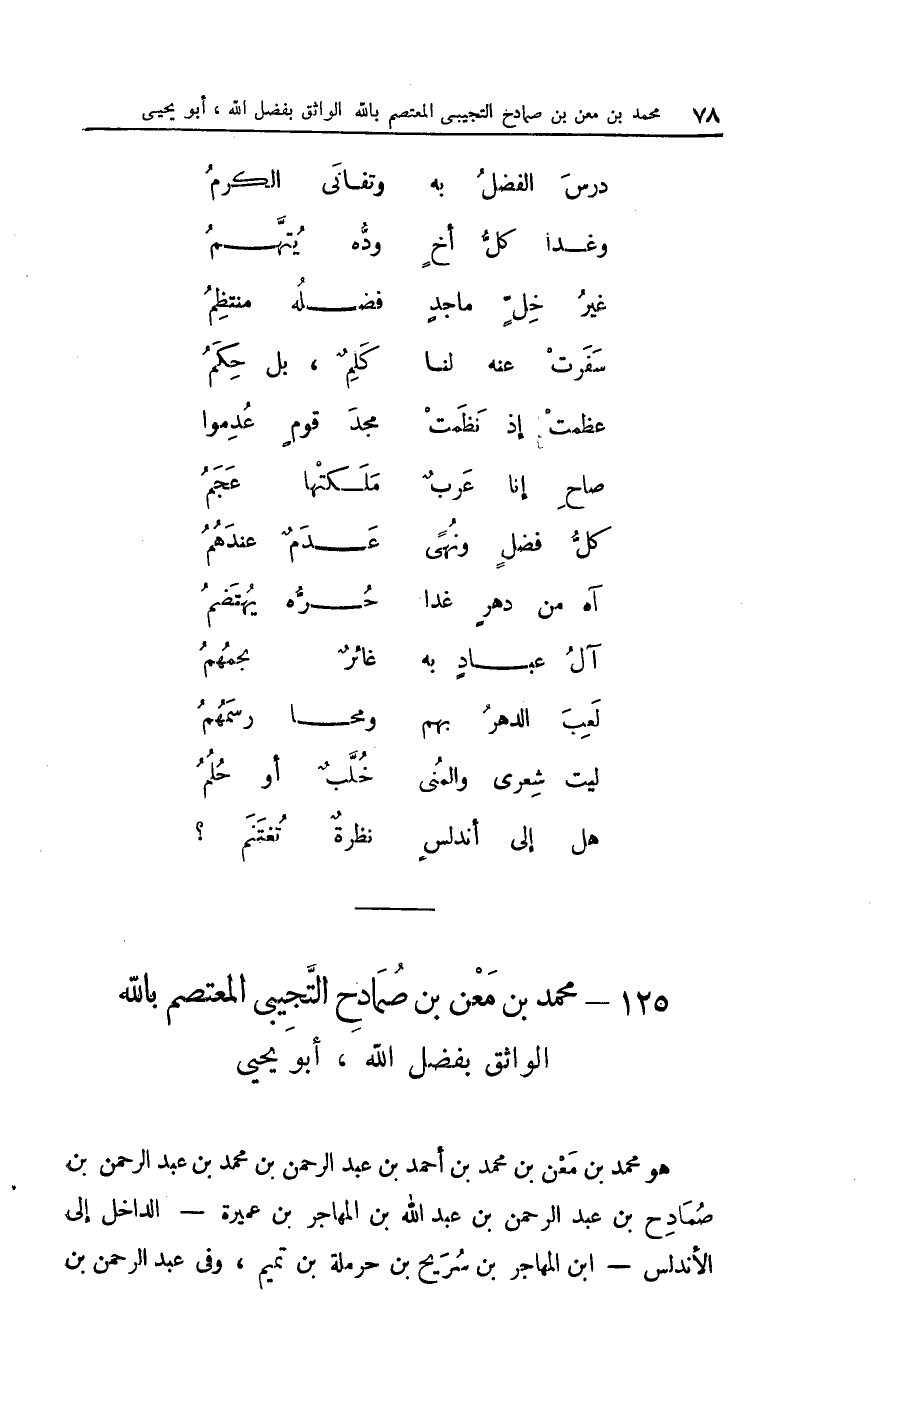 ٧٨ محمد بن معن بن صمادح التجيبى المعتصم بالله الواثق بفضل الله ، أبو يحيى
درسَ الفضلُ به وتفانَى الكرمُ
وغدا كلُّ أخٍ ودُّه يُتَّهمُ
غيرُ خِلٍّ ماجدٍ فضلُه منتظِمُ
سَفَرتْ عنه لنا كَلِمٌ ، بل حِكَمُ
عظمتْ إذ نَظَمتْ مجدَ قومٍ عُدِموا
صاحِ إنا عَربٌ مَلَكتْها عَجَمُ
كلُّ فضلٍ ونُهًى عَدَمٌ عندَهُمُ
آه من دهرٍ غدا حُرُّه يُهتَضمُ
آلُ عبادٍ به غائرٌ نجمُهُمُ
لَعِبَ الدهرُ بهم ومحا رسمَهُمُ
ليت شِعرى والمُنى خُلَّبٌ أو حُلُمُ
هل إلى أندلسٍ نظرةٌ تُغتَنَم ؟
١٢٥ – محمد بن مَعْن بن صُمَادِح التَّجِيبى المعتصم بالله
الواثق بفضل الله ، أبو يحيى
هو محمد بن مَعْن بن محمد بن أحمد بن عبد الرحمن بن محمد بن عبد الرحمن بن
صُمَادِح بن عبد الرحمن بن عبد الله بن المهاجر بن عميرة – الداخل إلى
الأندلس – ابن المهاجر بن سُرَيح بن حرملة بن تميم ، وفى عبد الرحمن بن